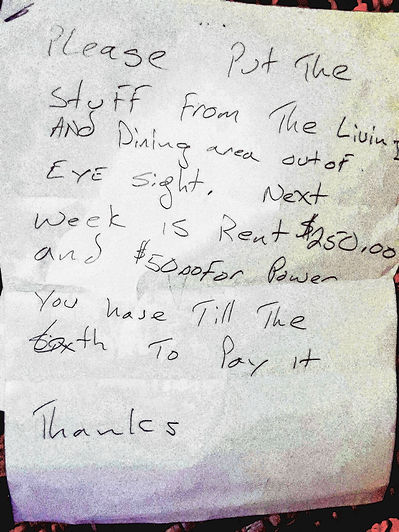 Please Put The
Stuff From The Living
AND Dining area out of
EYE sight. Next
week IS Rent $250.00
and $50.00 For Power
You have Till The
to Pay it
Thanks